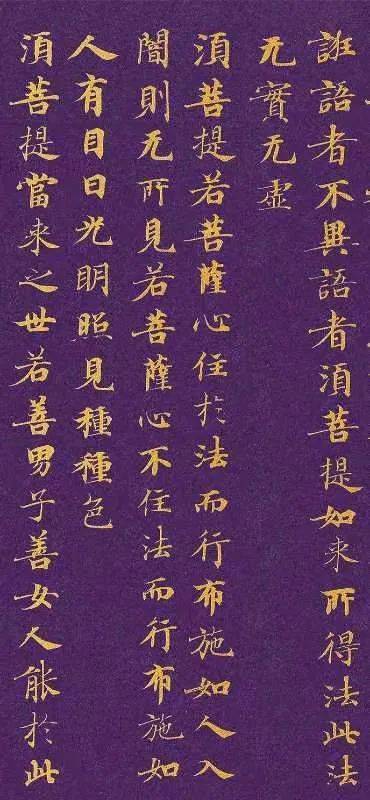 誑語者不異語者湏菩提如来所得法此法
无實无虚
湏菩提若菩薩心住於法而行布施如人入
闇則无所見若菩薩心不住法而行布施如
人有目日光明照見種種色
湏菩提當来之世若善男子善女人能於此